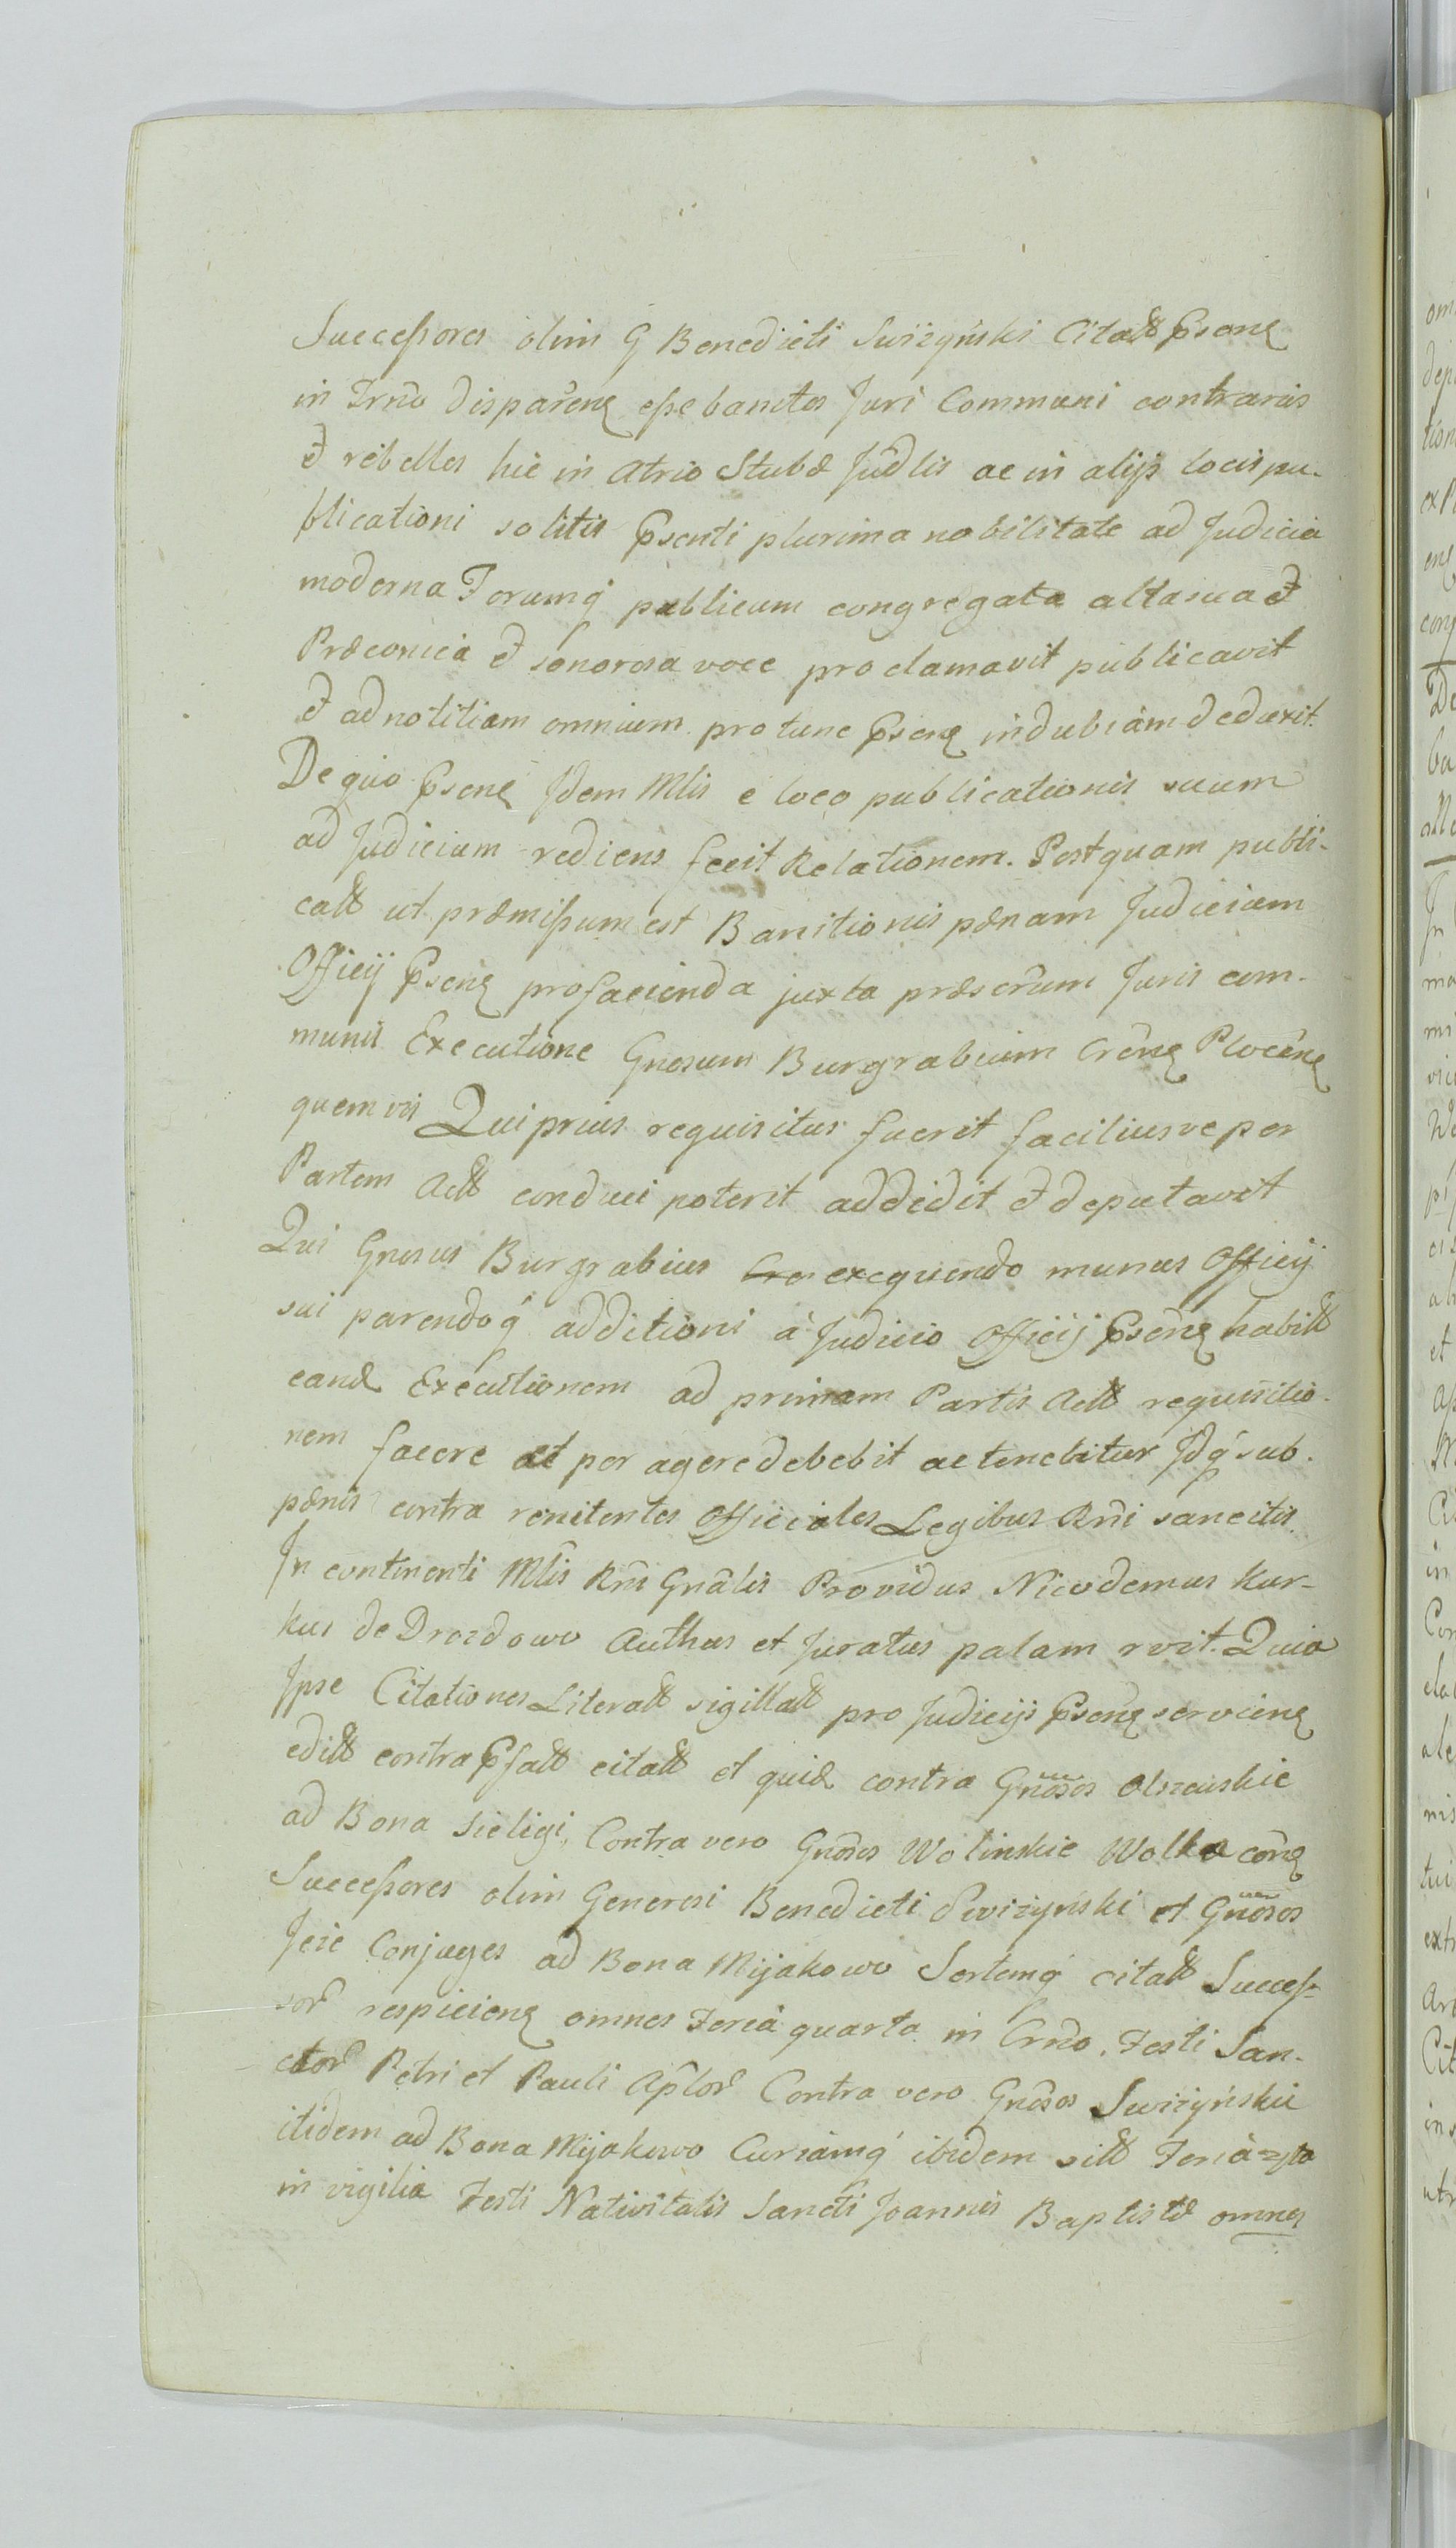 Successores olim G Benedicti Swiżyński Citatt Psenę
in Trno disparenę esse banitos Juri Communi contrarios
et rebelles hic in Atrio Stubæ Judlis ac in alijs locis pu-
blicationi solitis Psenti plurima nobilitate ad Judicia
moderna Forumq publicum congregata alta sua et
Præconica et sonorosa voce proclamavit publicavit
et ad notitiam omnium pro tunc Psenę indubiam deduxit.
De quo Psenę Idem Mlis e loco publicationis suum
ad Judicium rediens fecit Relationem. Postquam publi-
catt ut præmissum est Banitionis pænam Judicium
Officij Psenę pro facienda juxta præscrum Juris com-
munis Executione Gnosum Burgrabium Crenę Plocenę
quemvis Qui prius requisitus fuerit faciliusve per
Partem Actt conduci poterit addidit et deputavit
Qui Gnosus Burgrabius exequendo munus Officij
sui parendoq additioni à Judicio Officij Psenę habitt
eandæ Executionem ad primam Partis Actt requisitio-
nem facere et per agere debebit ac tenebitur Idq sub
pænis contra renitentes Officiales Legibus Rni sancitis.
In continenti Mlis Rni Gnalis Providus Nicodemus Kur-
kus de Drozdowo Authus et Juratus palam rvit. Quia
Ipse Citationes Literatt sigillatt pro Judicijs Psenę servienę
editt contra Psatt citatt et quidæ contra Gnosos Olszewskie
ad Bona Sieligi, Contra vero Gnosos Wolinskie Wolka conę
Successores olim Generosi Benedicti Swiżyński et Gnosos
Jeże Conjuges ad Bona Mijakowo Sortemq citatt Succes-
sor respicienę omnes Feriâ quarta in Crno. Festi San-
ctor Petri et Pauli Aplor Contra vero Gnosos Swiżyńskie
itidem ad Bona Mijakowo Curiamq ibidem sitt Feriâ
in vigilia Festi Nativitatis Sancti Joannis Baptistæ omnes